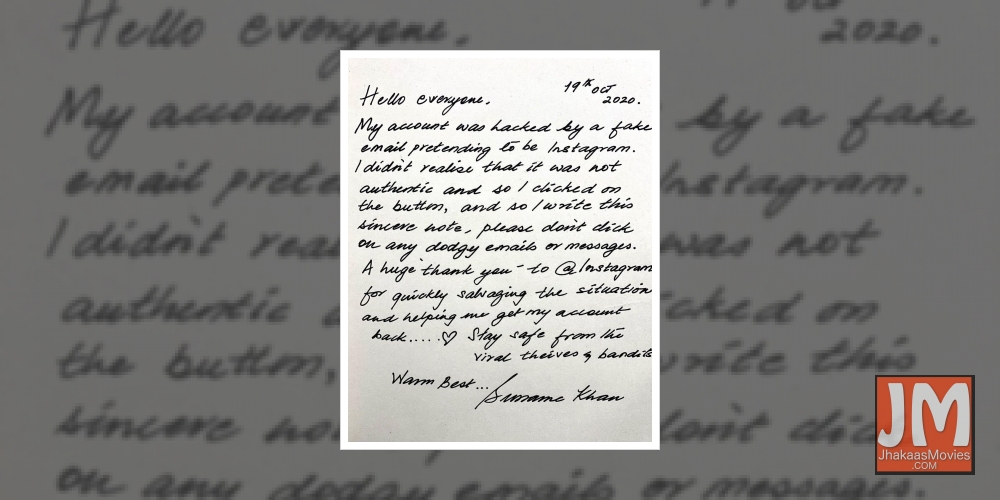 19th Oct
2020.
Hello everyone.
My account was hacked by a fake
email pretending to be Instagram.
I didn't realise that it was not
authentic and so I clicked on
the button, and so I write this
sincere note, please don't click
on any dodgy emails or messages.
A huge "thank you" to @Instagram
for quickly salvaging the situation
and helping me get my account
back.....♡ Stay safe from the
viral theives & bandits
Warm Best...
Sussanne Khan
JM
JhakaasMovies
.COM